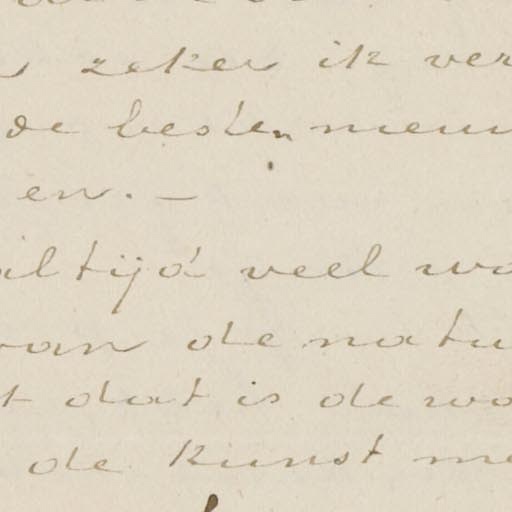 zeker ik ver
de besten nieuw
en. —
altijd veel wa
van de natu
t dat is de wa
de kunst me